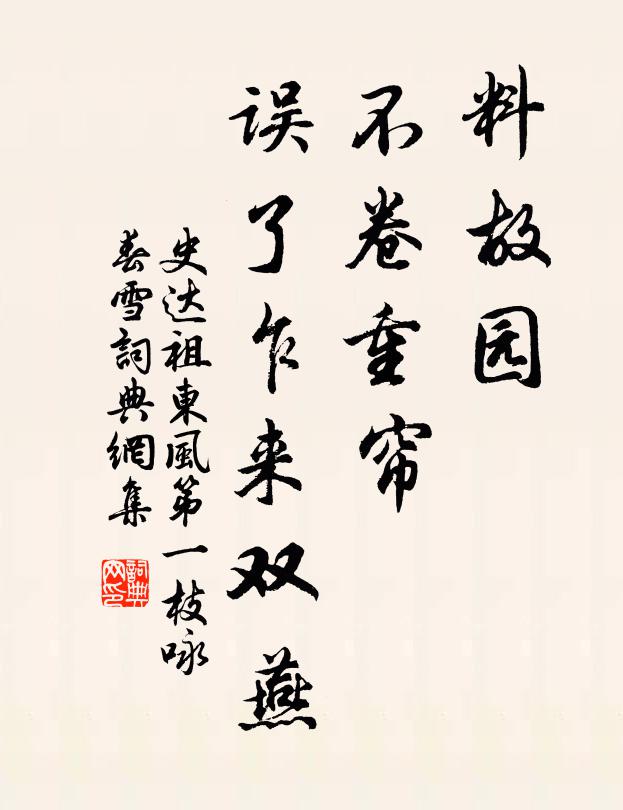 料故园
不卷重帘
误了乍来双燕
史达祖東風第一枝咏
春雪詞典網集
詞典
网印